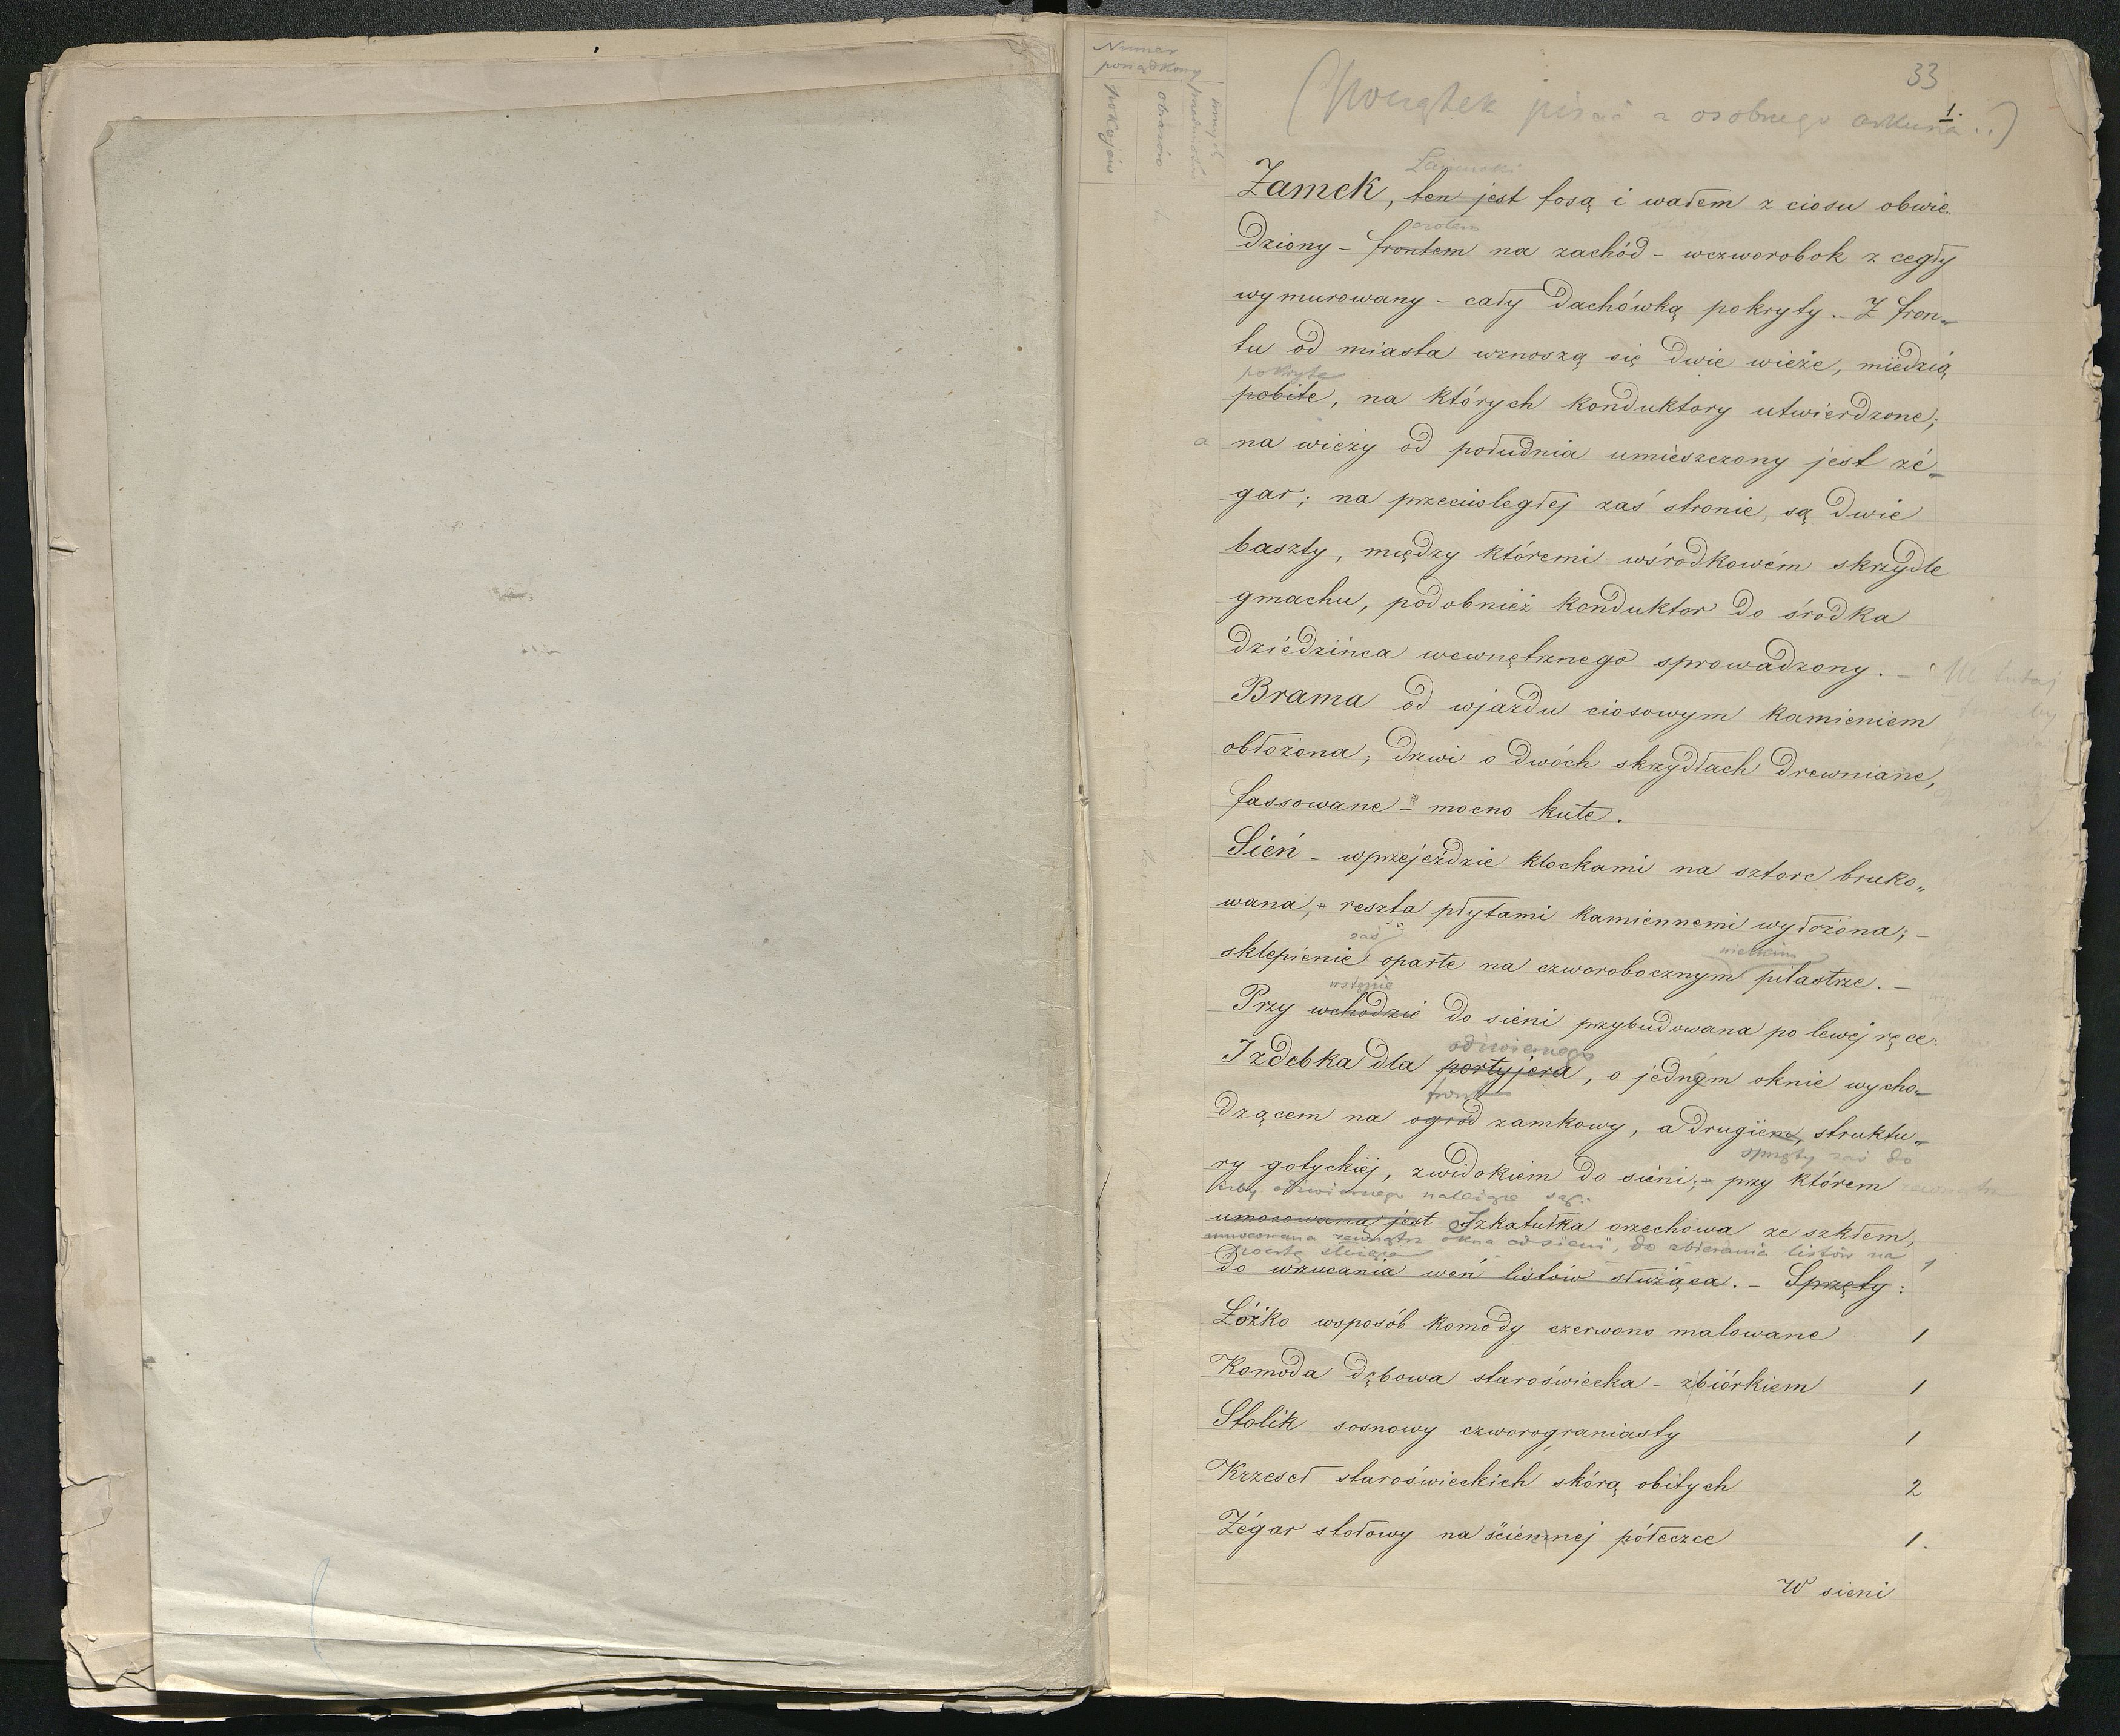 33
1.
Numer
porządkowy
pokojów
obrazów
innych
przedmiotów
(Początek pisać z osobnego arkusza..)
Zamek, ten jest fosą i wałem z ciosu obwie-
dziony - frontem na zachód - wczworobok z cegły
wymurowany - cały dachówką pokryty.. Z fron-
tu od miasta wznoszą się dwie wieże, miedzią
pokryte
pobite, na których konduktory utwierdzone;
a na wieży od południa umieszczony jest zé-
gar; na przeciwległej zaś stronie, są dwie
baszty, między któremi wśrodkowém skrzydle
gmachu, podobnież konduktor do środka
dziédzińca wewnętrznego sprowadzony. -
Brama od wjazdu ciosowym kamieniem
obłożona; drzwi o dwóch skrzydłach drewniane,
fassowane - mocno kute.
Sień - wprzejeździe klockami na sztorc bruko-
wana, - reszta płytami kamiennemi wyłożona; -
zaś wielkim
sklepienie oparte na czworobocznym pilastrze. -
wstępie
Przy wchodzie do sieni przybudowana po lewej ręce:
odźwiernego
Izdebka dla portyjera, o jednym oknie wycho-
front
dzącem na ogród zamkowy, a drugiem, struktu-
sprzęty zaś do
ry gotyckiéj, zwidokiem do sieni; - przy którem
izby odźwiernego należące są:
umocowana jest Szkatułka orzechowa ze szkłem,
umocowana zewnątrz okna od sieni, do zbierania listów na
pocztę służąca 1
do wrzucania weń listów służąca. - Sprzęty:
Łóżko wsposób komody czerwono malowane 1
Komoda dębowa staroświecka - zbiórkiem 1
Stolik sosnowy czworograniasty 1
Krzeseł staroświeckich skórą obitych 2
Zégar stołowy na ściennej półeczce 1.
W sieni